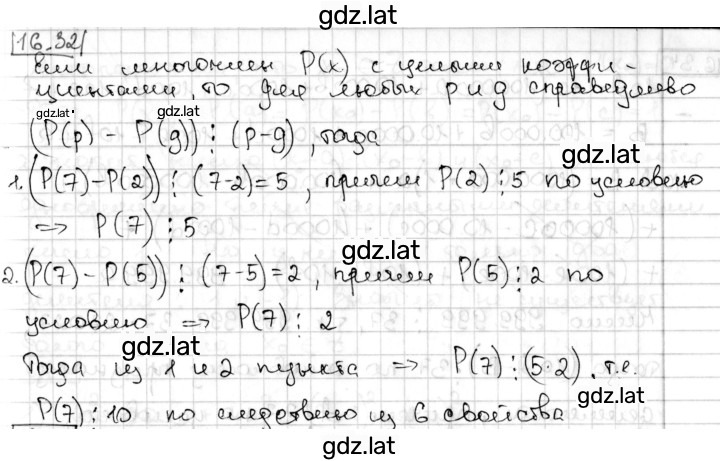 gdz.lat
16.32
Если многочлен P(x) с целыми коэффи-
циентами, то для любых p и g справедливо
gdz.lat
(P(p) - P(g)) ⋮ (p-g), тогда
gdz.lat
1. (P(7)-P(2)) ⋮ (7-2)=5, причем P(2) ⋮ 5 по условию
=> P(7) ⋮ 5
gdz.lat
2. (P(7) - P(5)) ⋮ (7-5)=2, причем P(5) ⋮ 2 по
условию => P(7) ⋮ 2
gdz.lat
Тогда из 1 и 2 пункта => P(7) ⋮ (5·2), т.е.
gdz.lat
P(7) ⋮ 10 по следствию из 6 свойства
gdz.lat